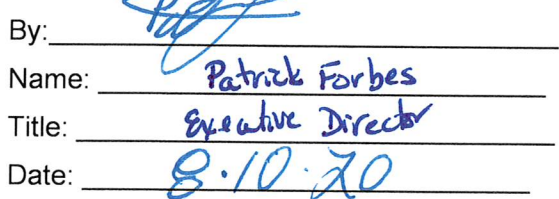 By:
Name: Patrick Forbes
Title: Executive Director
Date: 8.10.20